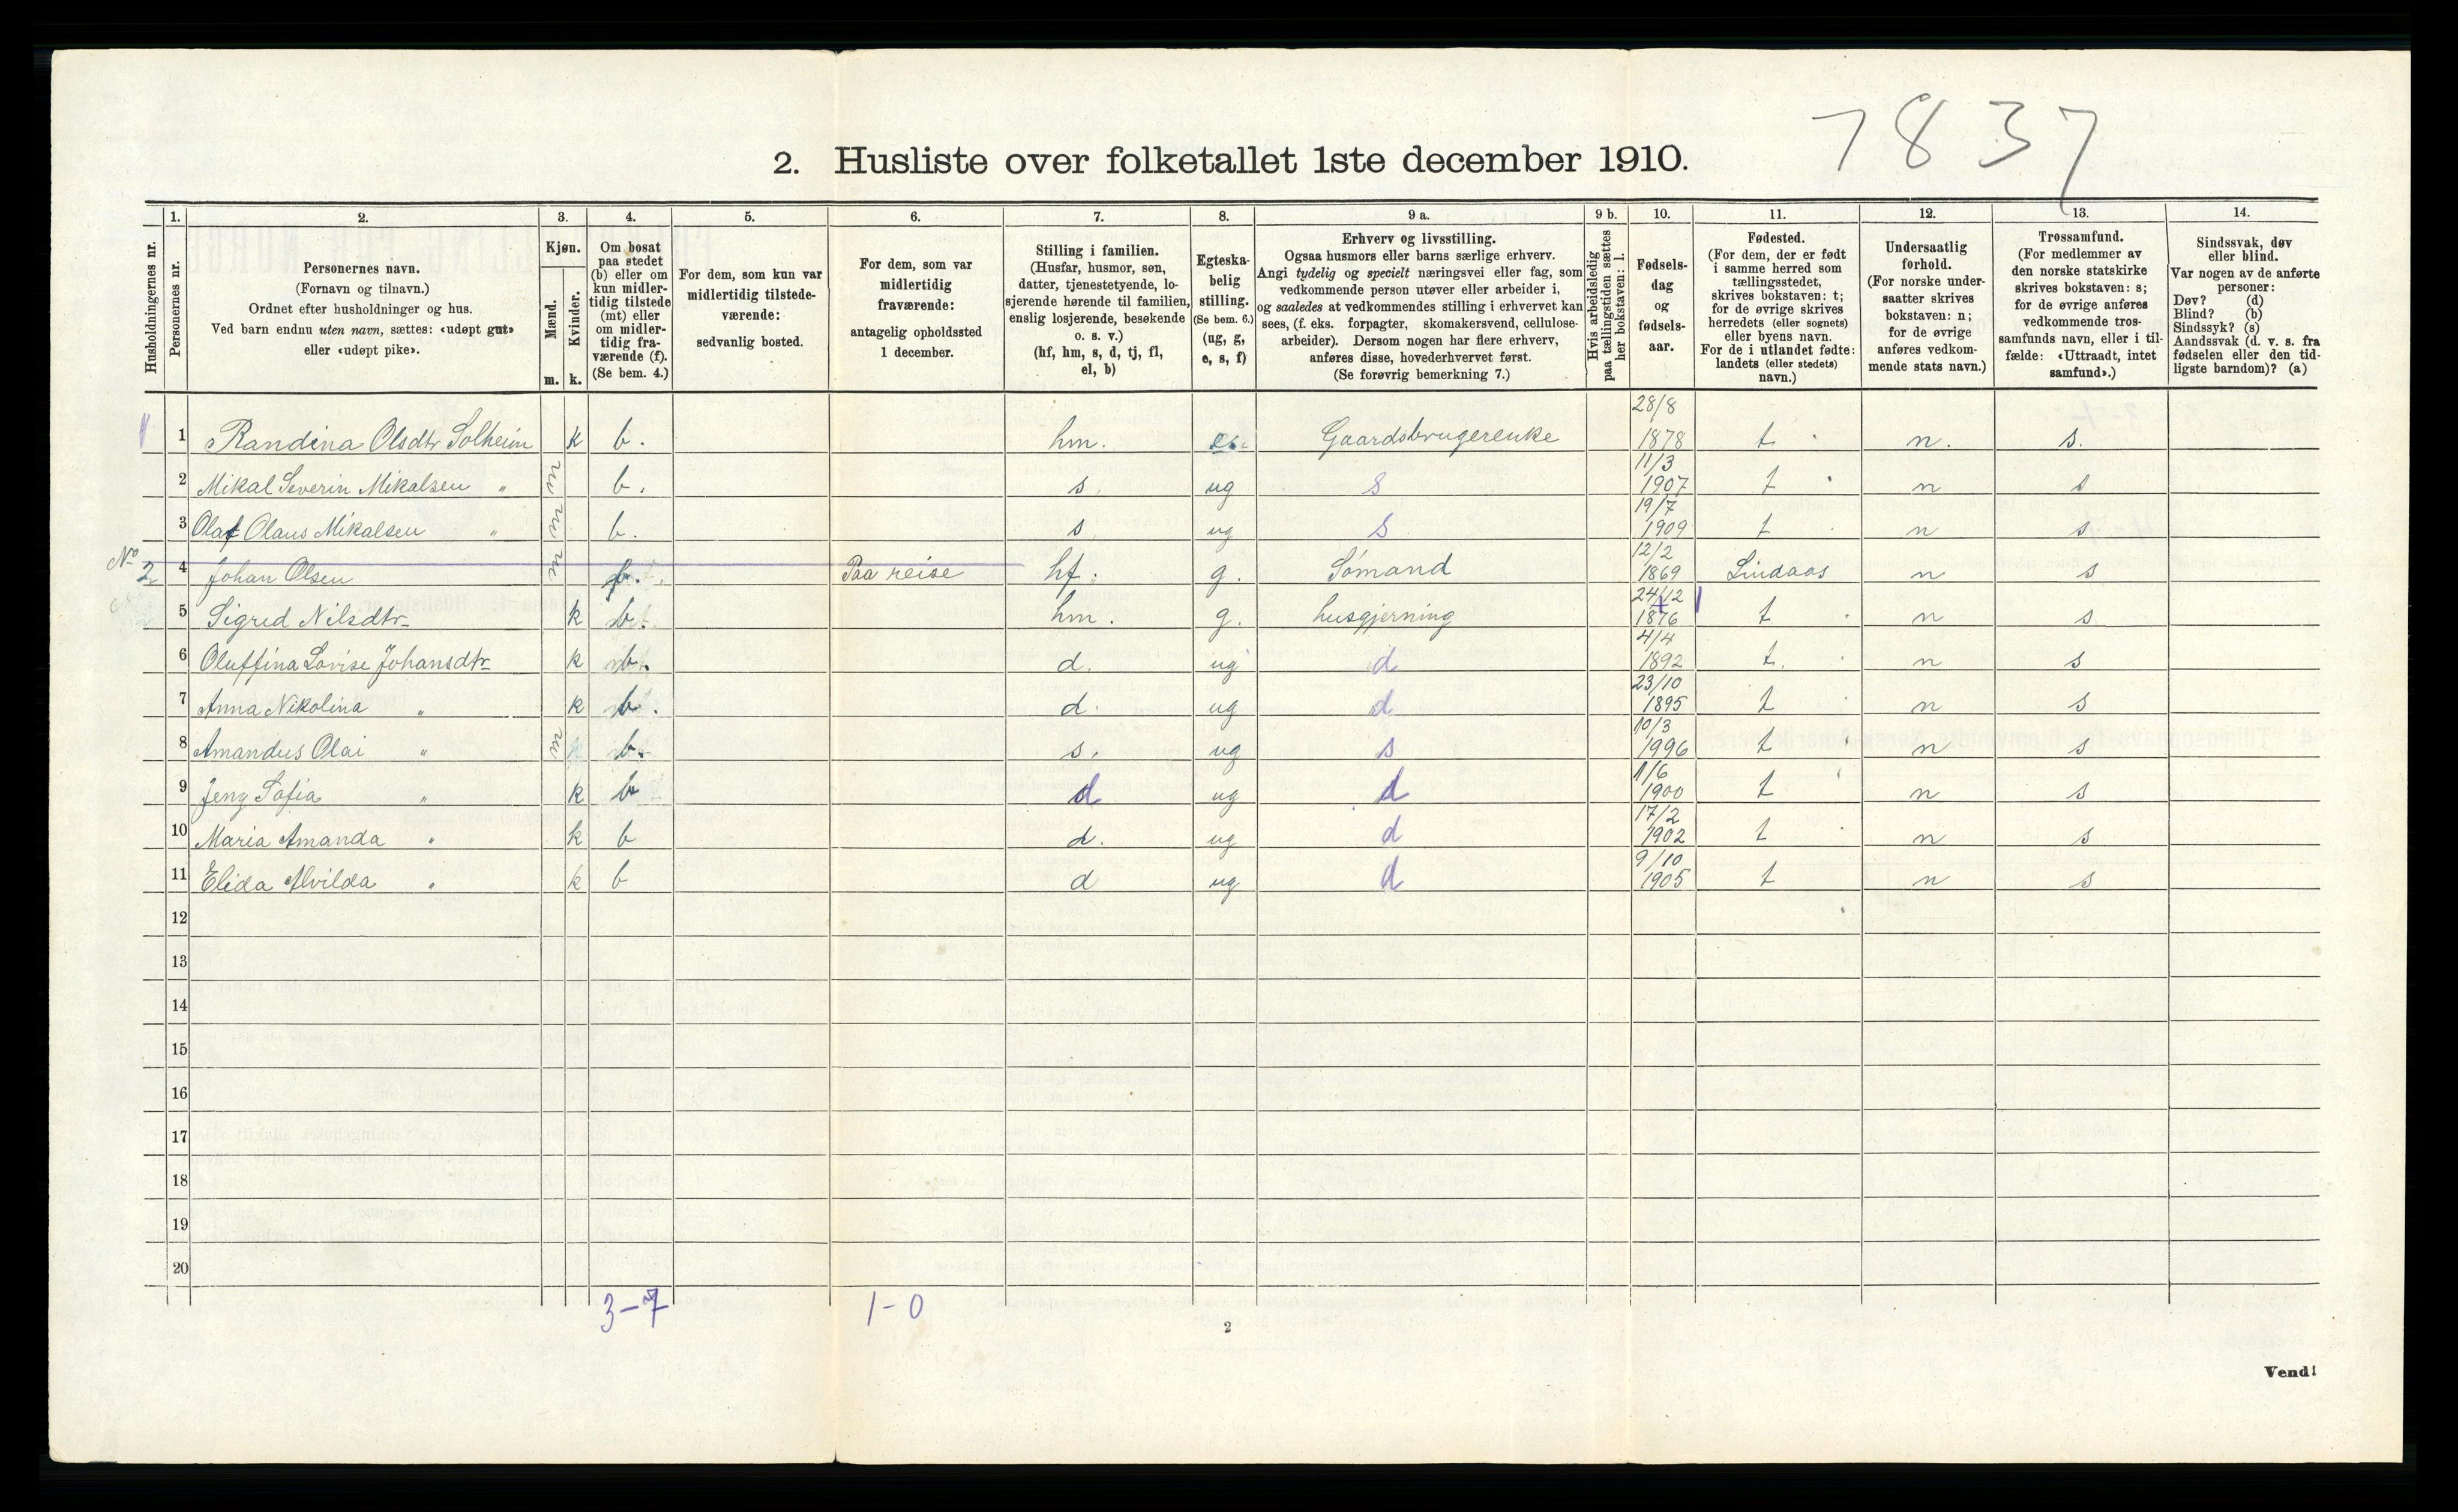 7837
2. Husliste over folketallet 1ste december 1910.
1. 2. 3. 4. 5. 6. 7. 8. 9 a. 9 b. 10. 11. 12. 13. 14.
Husholdningernes nr.
Personernes nr.
Personernes navn.
(Fornavn og tilnavn.)
Ordnet efter husholdninger og hus.
Ved barn endnu uten navn, sættes: «udøpt gut»
eller «udøpt pike».
Kjøn.
Mænd.
Kvinder.
m. k.
Om bosat
paa stedet
(b) eller om
kun midler-
tidig tilstede
(mt) eller
om midler-
tidig fra-
værende (f).
(Se bem. 4.)
For dem, som kun var
midlertidig tilstede-
værende:
sedvanlig bosted.
For dem, som var
midlertidig
fraværende:
antagelig opholdssted
1 december.
Stilling i familien.
(Husfar, husmor, søn,
datter, tjenestetyende, lo-
sjerende hørende til familien,
enslig losjerende, besøkende
o. s. v.)
(hf, hm, s, d, tj, fl,
el, b)
Egteska-
belig
stilling.
(Se bem. 6.)
(ug, g,
e, s, f)
Erhverv og livsstilling.
Ogsaa husmors eller barns særlige erhverv.
Angi tydelig og specielt næringsvei eller fag, som
vedkommende person utøver eller arbeider i,
og saaledes at vedkommendes stilling i erhvervet kan
sees, (f. eks. forpagter, skomakersvend, cellulose-
arbeider). Dersom nogen har flere erhverv,
anføres disse, hovederhvervet først.
(Se forøvrig bemerkning 7.)
Hvis arbeidsledig
paa tællingstiden sættes
her bokstaven: l.
Fødsels-
dag
og
fødsels-
aar.
Fødested.
(For dem, der er født
i samme herred som
tællingsstedet,
skrives bokstaven: t;
for de øvrige skrives
herredets (eller sognets)
eller byens navn.
For de i utlandet fødte:
landets (eller stedets)
navn.)
Undersaatlig
forhold.
(For norske under-
saatter skrives
bokstaven: n;
for de øvrige
anføres vedkom-
mende stats navn.)
Trossamfund.
(For medlemmer av
den norske statskirke
skrives bokstaven: s;
for de øvrige anføres
vedkommende tros-
samfunds navn, eller i til-
fælde: «Uttraadt, intet
samfund».)
Sindssvak, døv
eller blind.
Var nogen av de anførte
personer:
Døv? (d)
Blind? (b)
Sindssyk? (s)
Aandssvak (d. v. s. fra
fødselen eller den tid-
ligste barndom)? (a)
1 1 Randina Olsdtr Solheim k b. hm. e. Gaardsbrugerenke 28/8 1878 t n. s.
2 Mikal Severin Mikalsen " m b. s. ug s 11/3 1907 t n s
3 Olaf Olaus Mikalsen " m b. s. ug s 19/7 1909 t n s
No 2 4 Johan Olsen m f. Paa reise hf. g. Sømand 12/2 1869 Lindaas n s
5 Sigrid Nilsdtr k b. hm. g. husgjerning 24/12 1876 t n s
6 Oluffina Lovise Johansdtr k b. d. ug d 4/4 1892 t. n s
7 Anna Nikolina " k b. d. ug d 23/10 1895 t n s
8 Amandus Olai " m b. s. ug s 10/3 1996 t n s
9 Jeny Sofia " k b d ug d 1/6 1900 t n s
10 Maria Amanda " k b d. ug d 17/2 1902 t n s
11 Elida Alvilda " k b d ug d 9/10 1905 t n s
12
13
14
15
16
17
18
19
20
3-7 1-0
2
Vend!